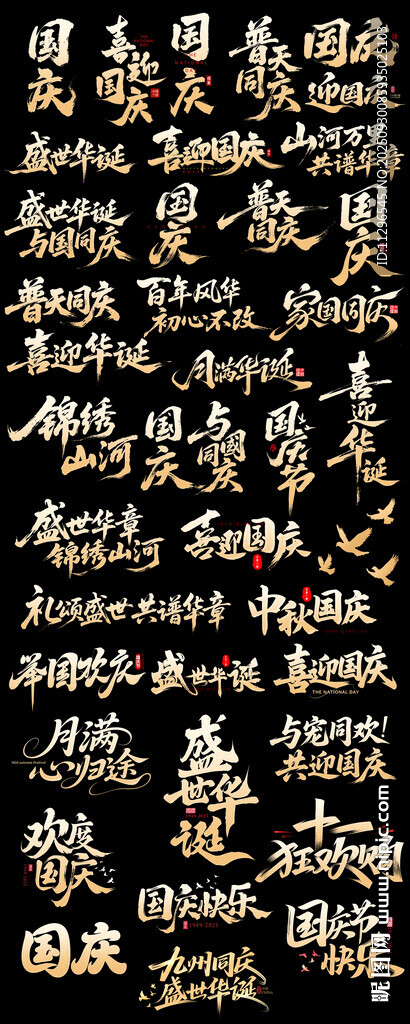 国庆
喜迎国庆
THE NATIONAL DAY
国庆
NATIONAL
普天同庆
国庆
迎国庆
盛世华诞
喜迎国庆
山河万里
共谱华章
盛世华诞
与国同庆
国庆
普天同庆
国庆
普天同庆
百年风华
初心不改
家国同庆
喜迎华诞
月满华诞
喜迎华诞
锦绣山河
国庆
与国同庆
国庆节
盛世华章
锦绣山河
喜迎国庆
礼颂盛世共谱华章
中秋国庆
举国欢庆
盛世华诞
喜迎国庆
THE NATIONAL DAY
月满
心归途
Mid-autumn Festival
盛世华诞
1949-2025
与宠同欢!
共迎国庆
欢度国庆
十一
狂欢购
国庆快乐
1949-2025
国庆节快乐
国庆
九州同庆
盛世华诞
昵图网 www.nipic.com
ID:11296545 NO:20250930085935025103